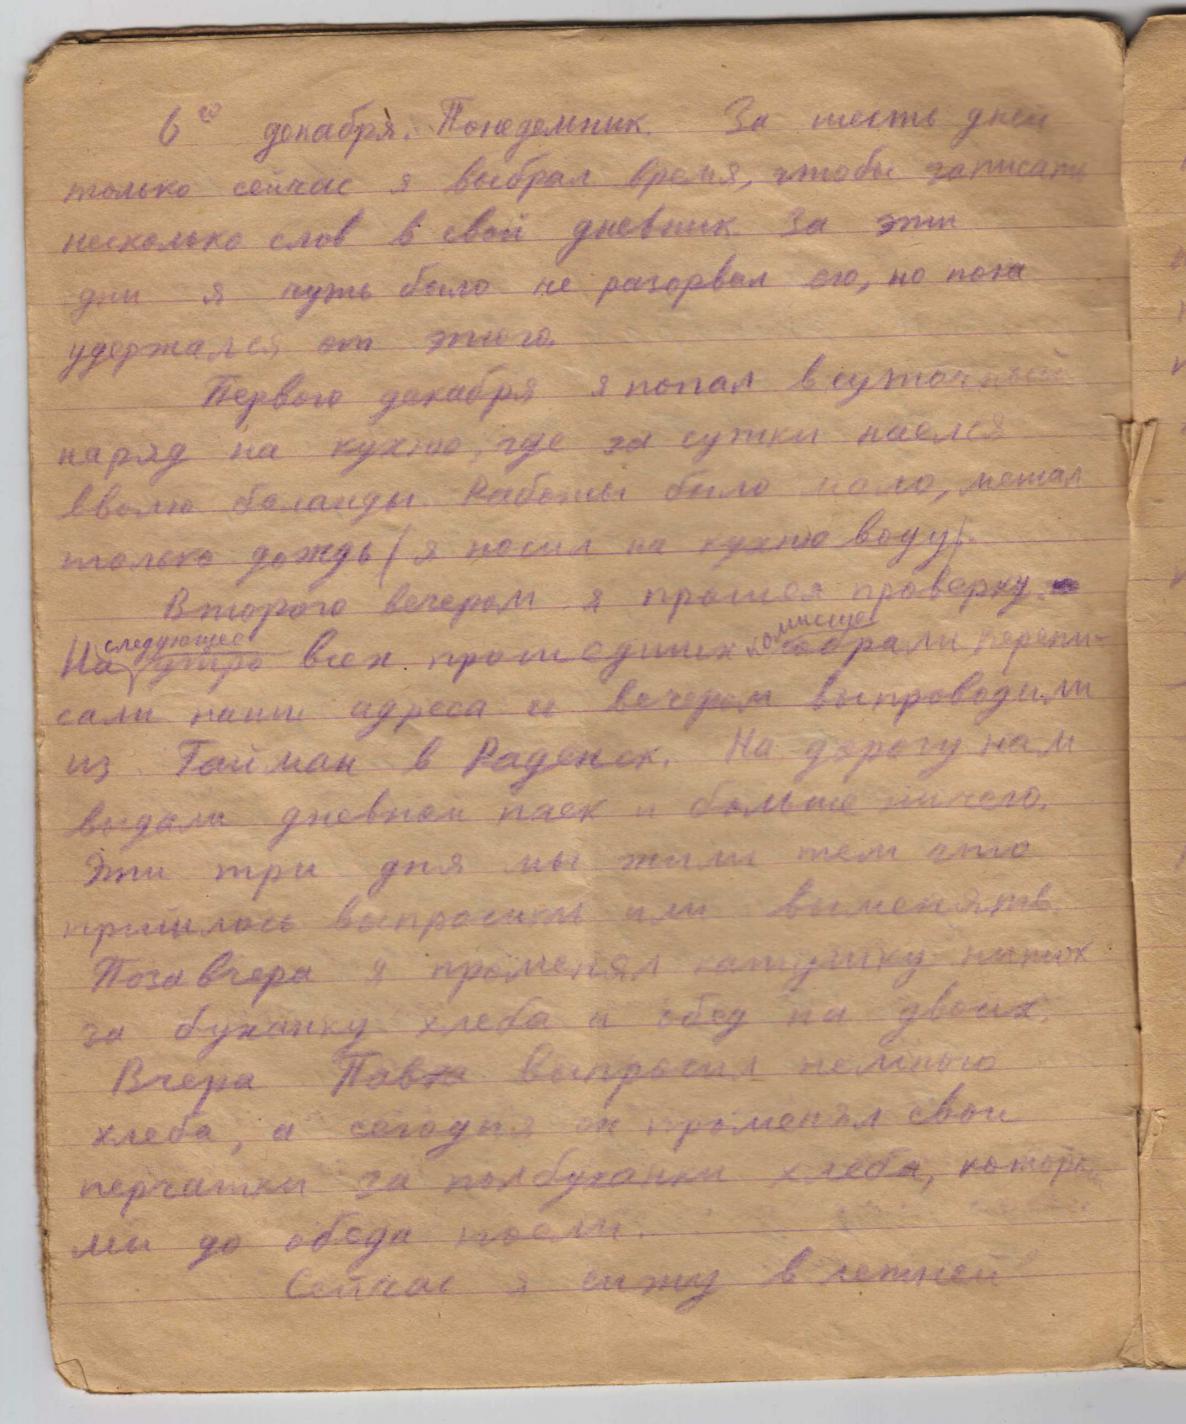 6го декабря. Понедельник. За шесть дней
только сейчас я выбрал время, чтобы записать
несколько слов в свой дневник За эти
дни я чуть было не разорвал его, но пока
удержался от этого.
Первого декабря я попал в суточный
наряд на кухню, где за сутки наелся
вволю баланды. Работы было мало, мешал
только дождь (я носил на кухню воду).
Второго вечером я прошел проверку.
следующее комиссию
На утро всех прошедших собрали, перепи-
сали наши адреса и вечером выпроводили
из Тайман в Раденск. На дорогу нам
выдали дневной паек и больше ничего.
Эти три дня мы жили тем что
пришлось выпросить или выменять.
Позавчера я променял катушку ниток
за буханку хлеба и обед на двоих.
Вчера выпросил немного
хлеба, а сегодня он променял свои
перчатки за полбуханки хлеба, котор
мы до обеда поели.
Сейчас я сижу в летней